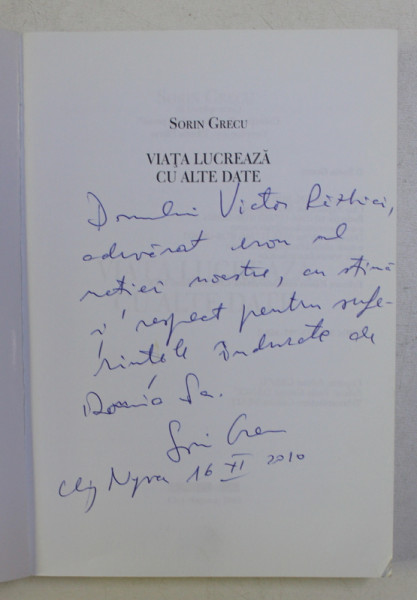 SORIN GRECU
VIAȚA LUCREAZĂ
CU ALTE DATE
Domnului Victor
adevărat erou al
nației noastre, cu stimă
și respect pentru sufe-
rințele îndurate de
Domnia Sa.
Sorin Grecu
Cluj Napoca 16 XI 2010